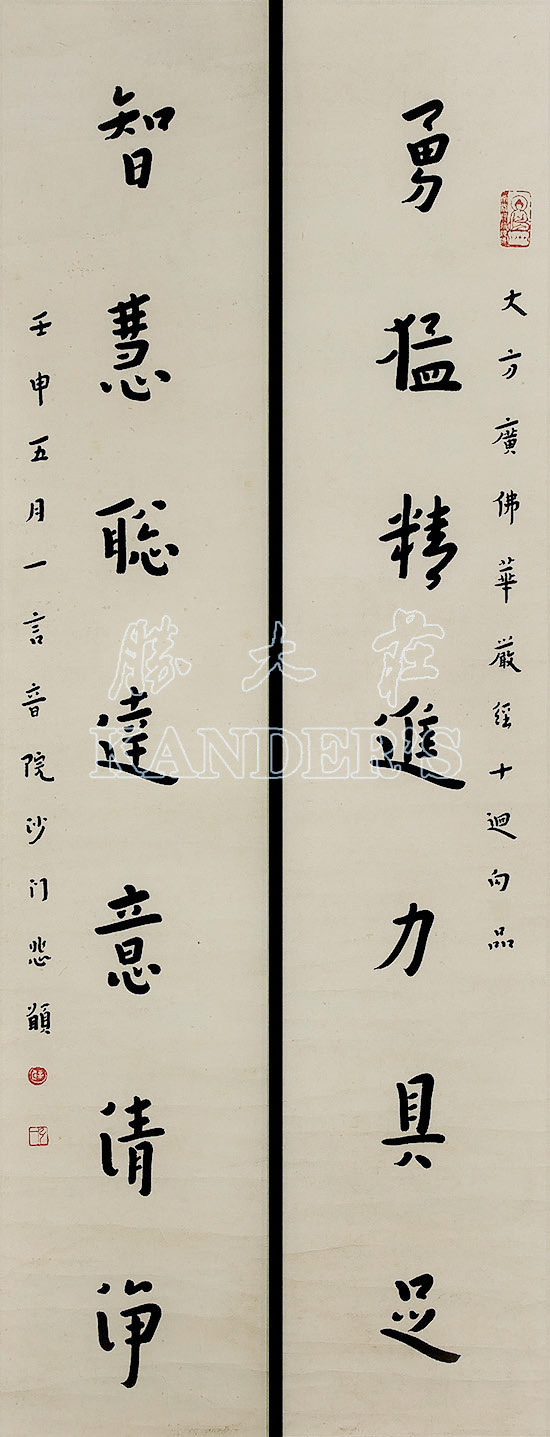 大方廣佛華嚴經十迴向品
勇猛精進力具足
智慧聰達意清淨
壬申五月一言音院沙门悲願
勝大莊
KANDER'S